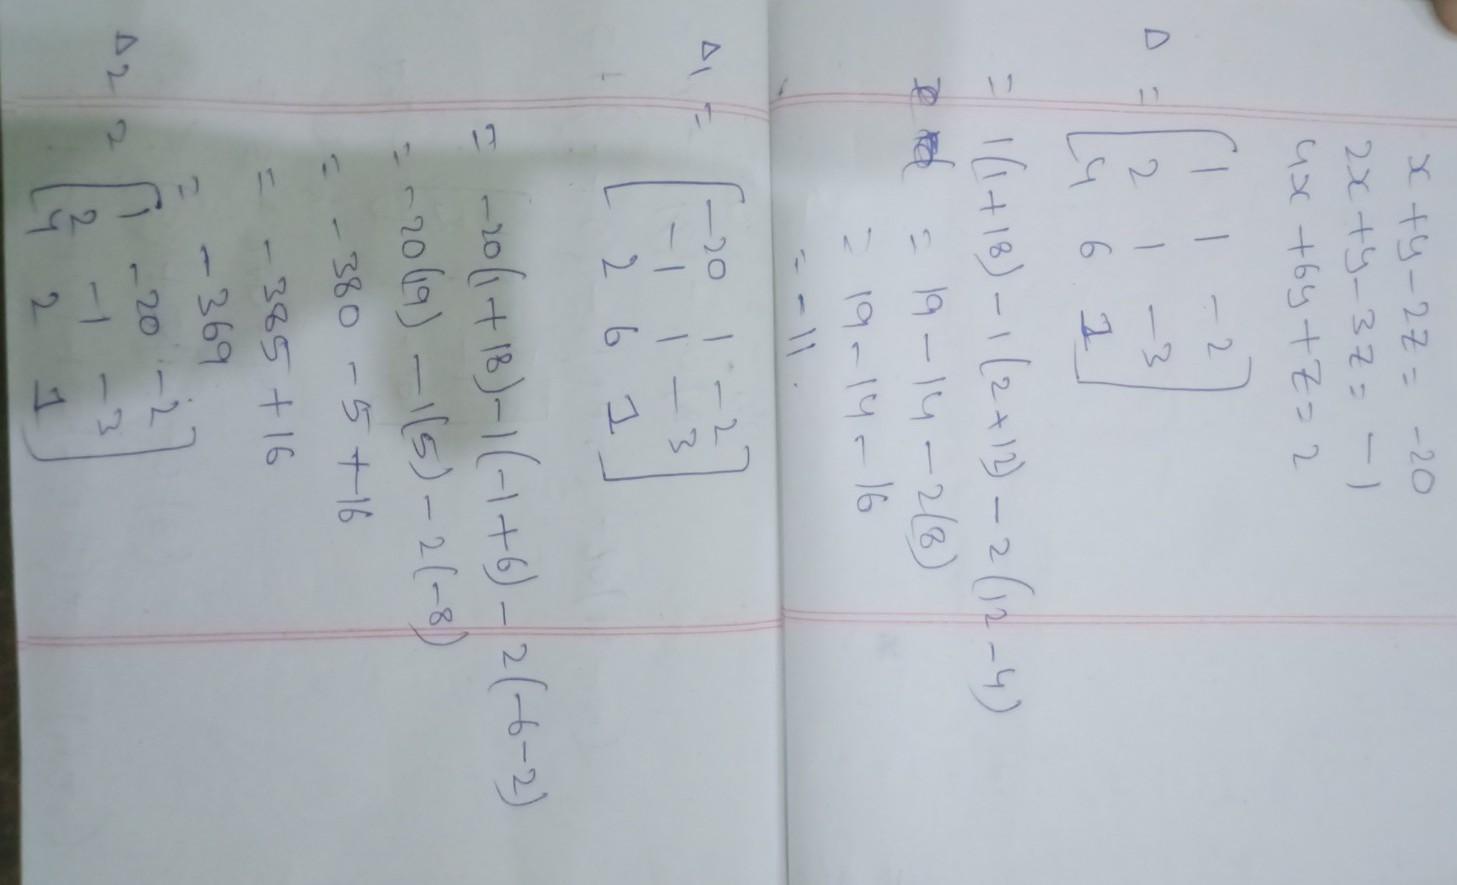 x + y - 2z = -20
2x + y - 3z = -1
4x + 6y + z = 2
Δ = [1 1 -2
2 1 -3
4 6 1]
= 1(1+18) - 1(2+12) - 2(12-4)
= 19 - 14 - 2(8)
= 19 - 14 - 16
= -11.
Δ1 = [-20 1 -2
-1 1 -3
2 6 1]
= -20(1+18) - 1(-1+6) - 2(-6-2)
= -20(19) - 1(5) - 2(-8)
= -380 - 5 + 16
= -385 + 16
= -369
Δ2 = [1 -20 -2
2 -1 -3
4 2 1]